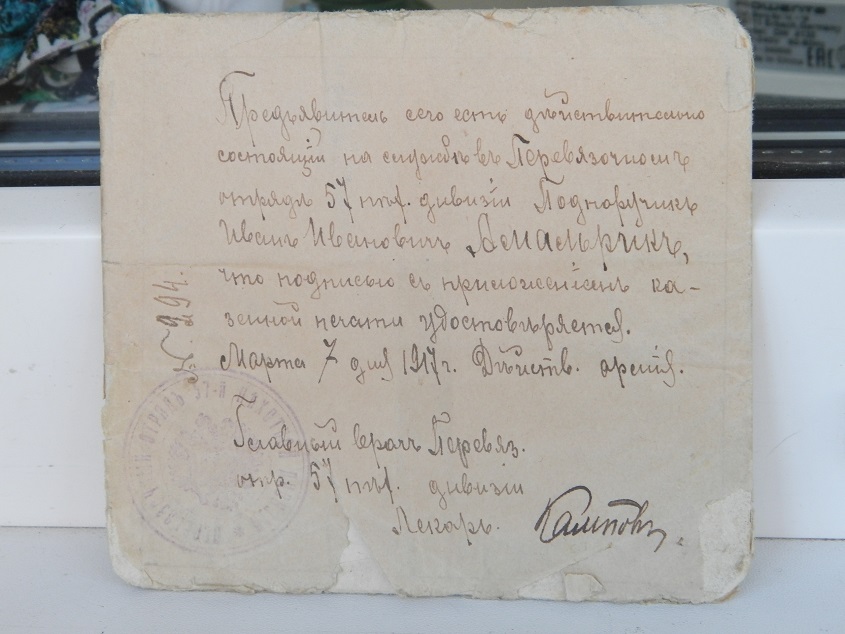 Предъявитель сего есть дѣйствительно
состоящій на службѣ въ Перевязочномъ
отрядѣ 57 пѣх. дивизіи Подпоручикъ
Иванъ Ивановичъ Амальрикъ,
что подписью съ приложеніемъ ка-
зенной печати удостовѣряется.
Марта 7 дня 1917 г. Дѣйств. армія.
№ 294.
Главный врачъ Перевяз.
отр. 57 пѣх. дивизіи
Лекарь.
EAC